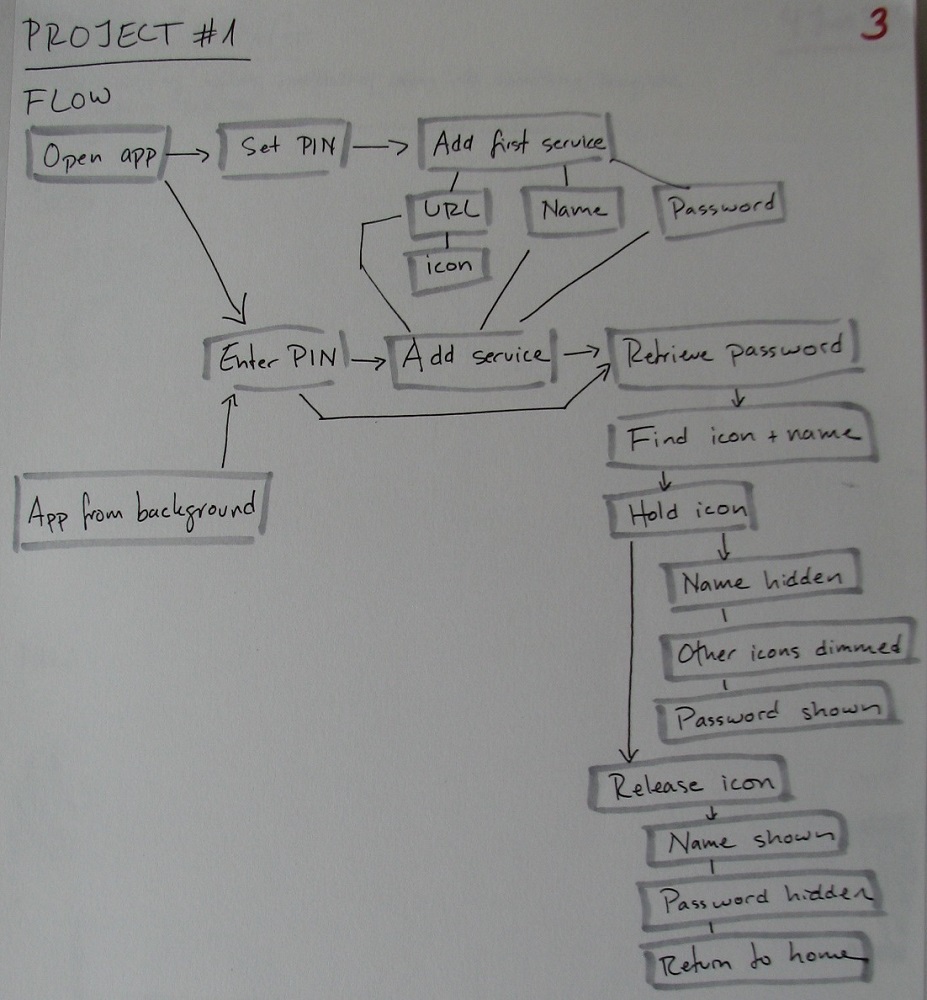 PROJECT #1
3
FLOW
Open app
Set PIN
Add first service
URL
Name
Password
icon
Enter PIN
Add service
Retrieve password
Find icon + name
App from background
Hold icon
Name hidden
Other icons dimmed
Password shown
Release icon
Name shown
Password hidden
Return to home